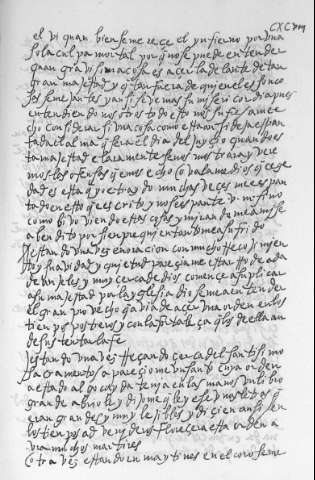 CXCVIII
el vi quan bien se me rece el ynfierno por una
sola culpa mortal por q no se puede entender
quan gravisima cosa es açerla delante de tan
gran majestad y q tan fuera de quien el es son co
sas semejantes y ansi se ve mas su misericordia pues
entendiendo nosotros todo esto nos sufre a me e
cho considerar si una cosa como esta ansi deja espan
tada el alma q sera el dia del juyçio quando es
ta majestad claramente se nos mostrara y vere
mos las ofensas q emos echo o valame dios q çege
dad es esta q yo e traydo muchas veçes me e espan
tado en esto q e escrito y no se espante v m sino
como bivo viendo estas cosas y mirandome a mi se
a bendito por siempre quien tanto me a sufrido
estando una vez en oraçion con mucho recojimien
to y suavidad y quietud pareçiame estar rodeada
de anjeles y muy çerca de dios començe a suplicar
a su majestad por la yglesia dioseme a entender
el gran provecho q avia de açer una orden en los
tienpos postreros y con la fortaleça q los de ella an
de sustentar la fe
estando una vez reçando çerca del santisimo
sacramento apareçiome un santo cuya orden
a estado algo cayda tenia en las manos un libro
grande abriole y dijome q leyese unas letras q
eran grandes y muy legibles y diçen ansi en
los tienpos advenideros floreçera esta orden a
vra muchos martires
otra vez estando en maytines en el coro se me